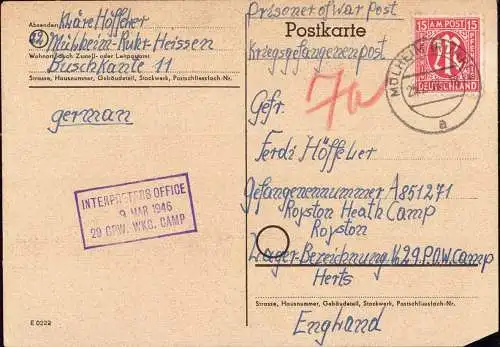 Absender: Kläre Höffeler
Mülheim-Ruhr-Heissen
Wohnort, auch Zustell- oder Leitpostamt
Buschkante 11
Strasse, Hausnummer, Gebäudeteil, Stockwerk, Postschliessfach-Nr.
german
INTERPRETERS OFFICE
9 MAR 1946
29 GPW. WKG. CAMP
E 0222
Prisoner of war Post
Postkarte
Kriegsgefangenenpost
15 A M POST 15
DEUTSCHLAND
MÜLHEIM
a
7a
Gefr.
Ferdi Höffeler
Gefangenennummer A851271
Royston Heath Camp
Royston
Lager-Bezeichnung № 29 P.O.W. Camp
Herts
Strasse, Hausnummer, Gebäudeteil, Stockwerk, Postschliessfach-Nr.
England